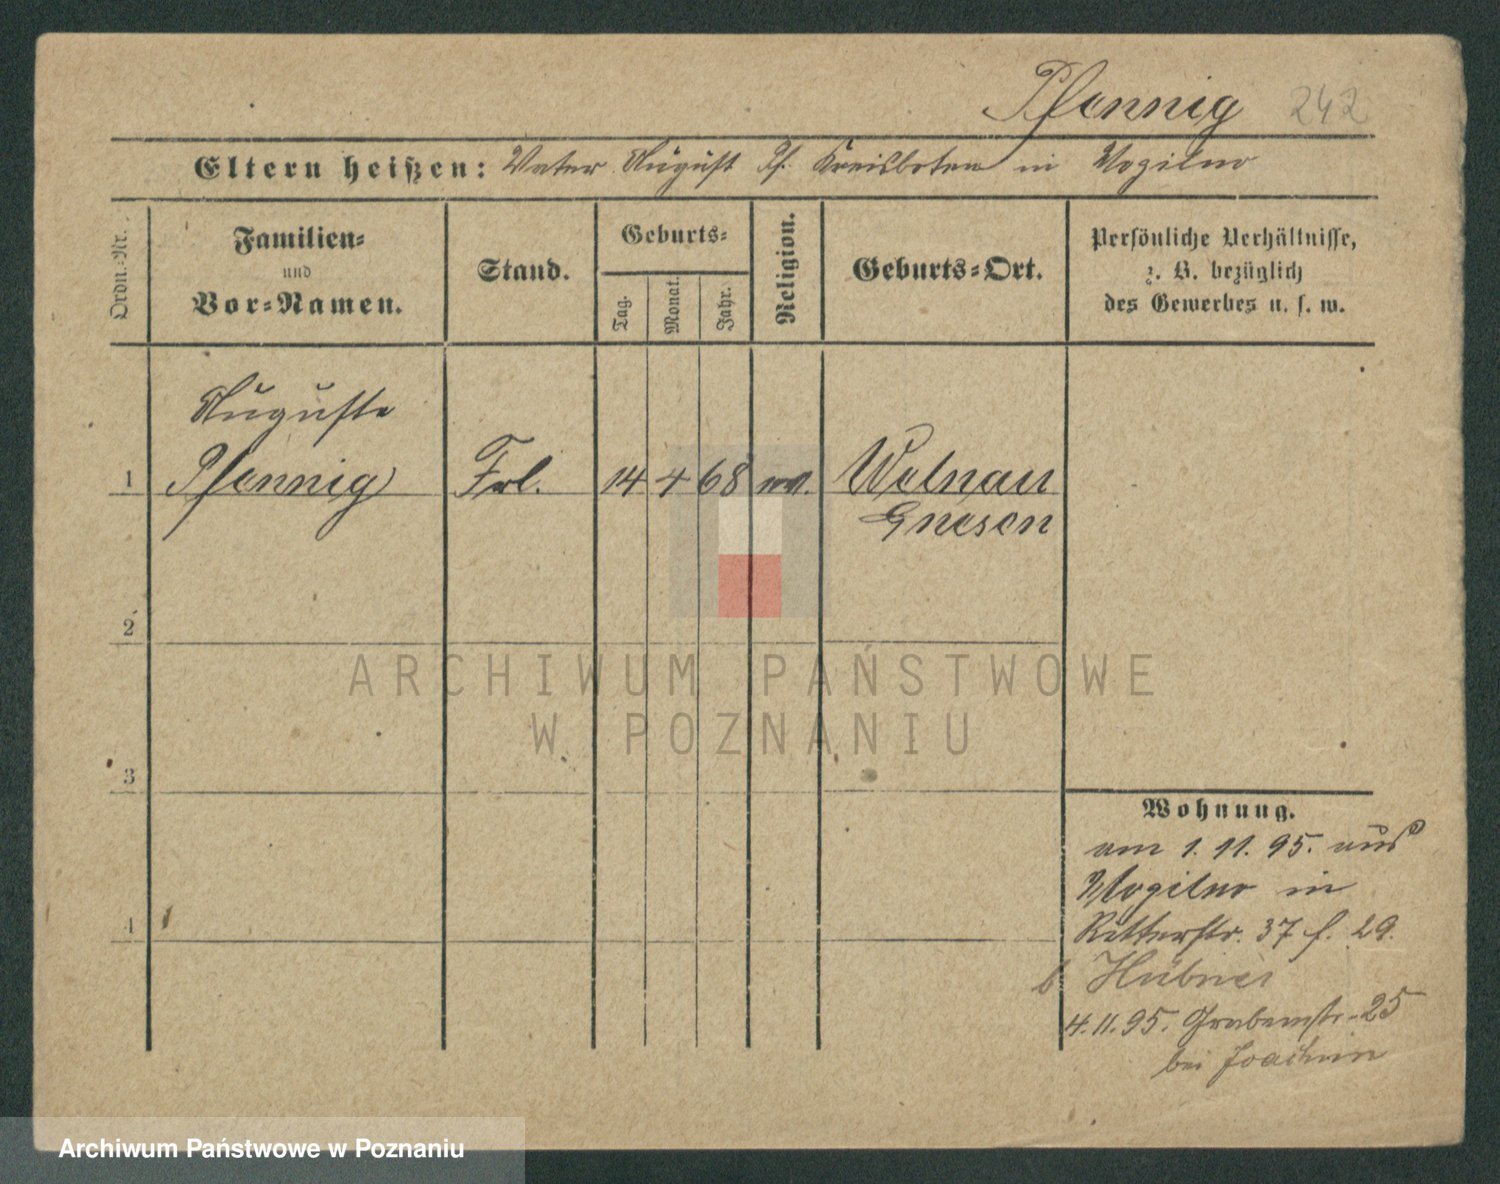 Pfennig 242
Eltern heißen: Vater August Pf. Kreisboten in Mogilno
Ordn.-Nr.
Familien-
und
Vor-Namen.
Stand.
Geburts-
Tag.
Monat.
Jahr.
Religion.
Geburts-Ort.
Persönliche Verhältnisse,
z. B. bezüglich
des Gewerbes u. s. w.
Auguste
1 Pfennig Frl. 14 4 68 ev. Welnau
Gnesen
2
3
4
Wohnung.
am 1. 11. 95. aus
Mogilno in
Ritterstr. 37 f. 29.
b Hübner
4. 11. 95. Grabenstr. 25
bei Joachim
ARCHIWUM PAŃSTWOWE
W POZNANIU
Archiwum Państwowe w Poznaniu